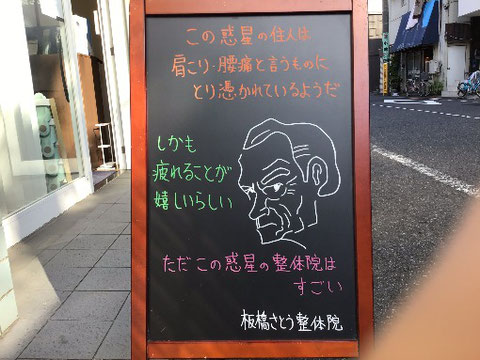 この惑星の住人は
肩こり・腰痛と言うものに
とり憑かれているようだ
しかも
疲れることが
嬉しいらしい
ただこの惑星の整体院は
すごい
板橋さとう整体院